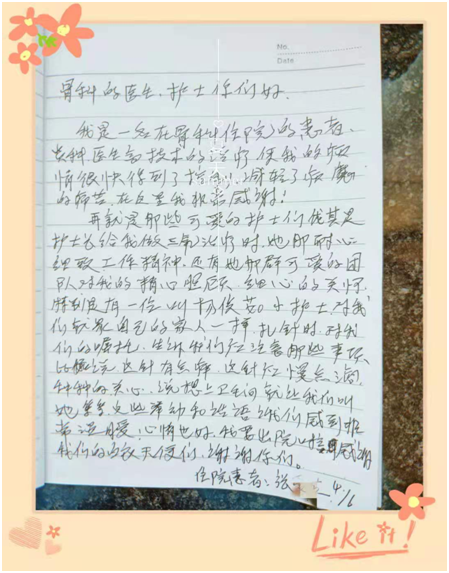 No.
Date
骨科的医生、护士你们好.
我是一名在骨科住院的患者、
贵科医生高技术的治疗使我的病
情很快得到了控制、减轻了病魔
的痛苦在这里我非常感谢!
再就是那些可爱的护士们优其是
护士长给我做三氧治疗时、她那耐心
细致工作精神.还有她那群可爱的团
队对我的精心照顾、细心的关怀.
特别是有一位叫杨俊苦.小护士对我
们就象自己的家人一样.扎针时.对我
们的嘱托.告诉我们应注意那些事项
比如说这针有点痛.这针应慢点滴
种种的关心.说想上卫生间就让我们叫
她等等这些举动和话语让我们感到非
常温暖.心情也好.我要出院以信感谢
我们的白衣天使们.谢谢你们。
住院患者:张
4/6
Like it!